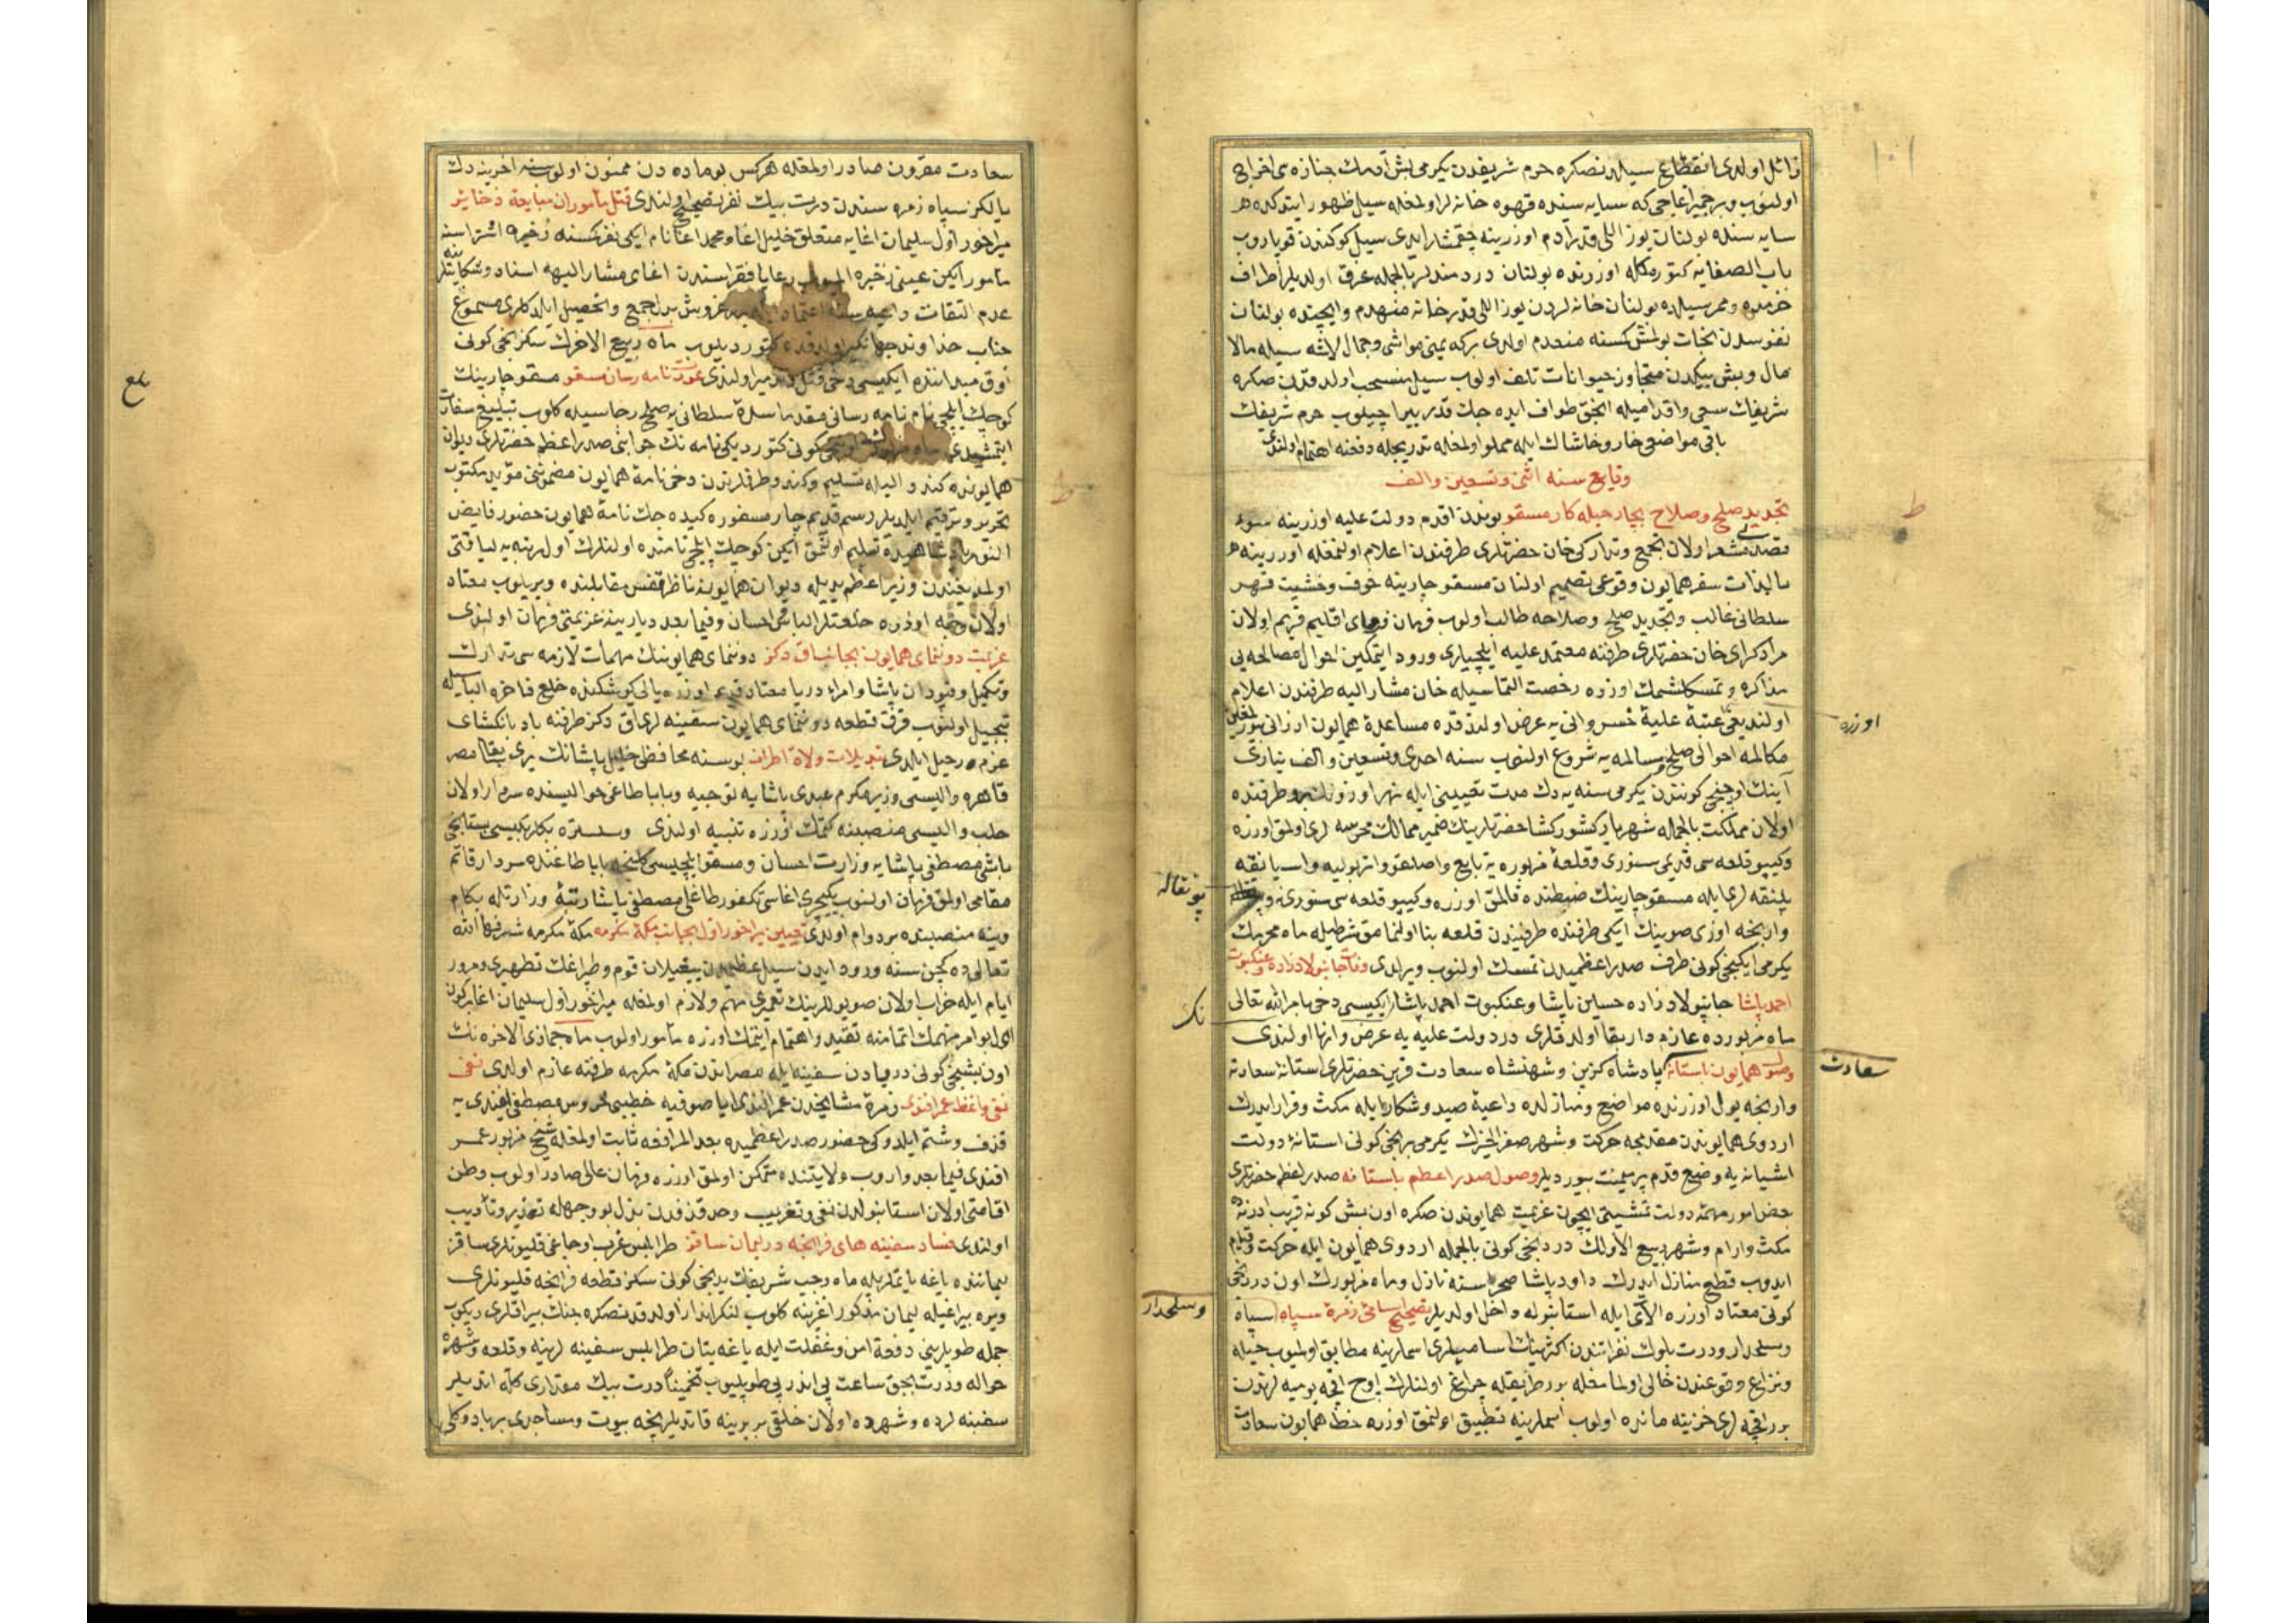 زائل اولدی انقطاع سیلدن صکره حرم شریفدن یکرمی بش آدمك جنازه سی اخراج
اولنوب و بر جمیز اغاجی که سایه سنده قهوه خانه لر اولمغله سیل ظهور ایتدکده
سایه سنده بولنان یوز اللی قدر آدم اوزرینه چقمشلر ایدی سیل کوکندن قوپاروب
باب الصفایه کتورمکله اوزرنده بولنان دردمندلر بالجمله غرق اولدیلر اطراف
حرمده و ممر سیلده بولنان خانه لردن یوز اللی قدر خانه منهدم و ایچنده بولنان
نفوسدن نجات بولمش کسنه منعدم اولدی برکه یمنی مواشی و جمال لاشه سیله مالا
مال و بش بیکدن متجاوز حیوانات تلف اولوب سیل منسحب اولدقدن صکره
شریفك سعی و اقدامیله انجق طواف ایده جك قدر یر اچیلوب حرم شریفك
باقی مواضعی خار و خاشاك ایله مملو اولمغله تدریجله دفعنه اهتمام اولندی
وقایع سنه اثنی و تسعین و الف
تجدید صلح و صلاح بچار حیله کار مسقو بوندن اقدم دولت علیه اوزرینه سوء
قصدی مشعر اولان تجمع و تدارکی خان حضرتلری طرفندن اعلام اولنمغله اوزرینه
بالذات سفر همایون وقوعی تصمیم اولنان مسقو چارینه خوف و خشیت قهر
سلطانی غالب و تجدید صلح و صلاحه طالب اولوب فرمان فرمای اقلیم قریم اولان
مراد کرای خان حضرتلری طرفنه معتمد علیه ایلچیلری ورود ایتمکین احوال مصالحه یی
مذاکره و تمسکلشمك اوزره رخصت التماسیله خان مشار الیه طرفندن اعلام
اولندیغی عتبهٔ علیهٔ خسروانی یه عرض اولندقده مساعدهٔ همایون ارزانی بیورلمغین
اوزره
مکالمه احوالی صلح و مسالمه یه شروع اولنوب سنه احدی و تسعین و الف ینازی
آینك اوچنجی کونندن یکرمی سنه یه دك مدت تعیینی ایله نهر اوزونك برو طرفنده
اولان مملکت بالجمله شهریار کشورکشا حضرتلرینك ضمیر ممالك محروسه لری اولمق اوزره
و کیپو قلعه سی قدیمی سنوری و قلعهٔ مزبوره یه تابع واصلقو و اتربولیه و اسپانقه
پلنقه لری ایله مسقو چارینك ضبطنده قالمق اوزره و کیپو قلعه سی سنورندن
پونقاله
وارنجه اوزی صوینك ایکی طرفنده طرفیندن قلعه بنا اولنمامق شرطیله ماه محرمك
یکرمی ایکنجی کونی طرف صدر اعظمیدن تمسك اولنوب ویرلدی وفات جانبولادزاده و عنکبوت
احمد پاشا جانبولادزاده حسین پاشا و عنکبوت احمد پاشا ایکیسی دخی بامر الله تعالی
نك
ماه مزبورده عازم دار بقا اولدقلری در دولت علیه یه عرض و انها اولندی
وصول همایون باستانه پادشاه کزین و شهنشاه سعادت قرین حضرتلری استانهٔ سعادته
سعادت
وارنجه یول اوزرنده مواضع و منازلده داعیهٔ صید و شکار ایله مکث و قرار ایدرك
اردوی همایوندن مقدمجه حرکت و شهر صفر الخیرك یکرمی برنجی کونی استانهٔ دولت
اشیانه یه وضع قدم پر یمنت بیوردیلر وصول صدر اعظم باستانه صدر اعظم حضرتلری
بعض امور مهمهٔ دولت تمشیتی ایچون عزیمت همایوندن صکره اون بش کونه قریب ادرنه ده
مکث و ارام و شهر ربیع الاولك دردنجی کونی بالجمله اردوی همایون ایله حرکت و قیام
ایدوب قطع منازل ایدرك داود پاشا صحراسنه نازل و ماه مزبورك اون دردنجی
کونی معتاد اوزره الای ایله استانبوله داخل اولدیلر تصحیح اسامی زمرهٔ سپاه سپاه
و سلحدار
و سلحدار و درت بلوك نفراتندن اکثرینك اسامیلری اسملرینه مطابق اولمیوب حیله
و نزاع وقوعندن خالی اولمامغله بر طریقله چراغ اولنلرك اوچ اقچه یومیه لرندن
برر اقچه لری خزینه مانده اولوب اسملرینه تطبیق اولنمق اوزره خط همایون سعادت
سعادت مقرون صادر اولمغله هرکس بو ماده دن ممنون اولوب سنه اخرینه دك
یالکز سپاه زمره سندن درت بیك نفر تصحیح اولندی قتل مأموران مبایعهٔ ذخایر
میراخور اول سلیمان اغایه متعلق خلیل اغا و محمد اغا نام ایکی نفر کسنه ذخیره اشتراسنه
مأمور ایکن عینی ذخیره المیوب رعایا فقراسندن اغای مشار الیهه اسناد و شکایتلرینه
عدم التفات داعیه سنه اعتماد غروش بدل جمع و تحصیل ایلدکلری مسموع
جناب خداوند جهانکیر اولدقده کتوردیلوب ماه ربیع الاخرك سکزنجی کونی
اوق میداننده ایکیسی دخی قتل اولندی عودت نامه رسان مسقو مسقو چارینك
کوچك ایلچی نام نامه رسانی مقدما سدهٔ سلطانی یه صلح رجاسیله کلوب تبلیغ سفارت
ایتمشیدی کونی کتوردیکی نامه نك جوابنی صدر اعظم حضرتلری دیوان
همایونده کندو الیله تسلیم و کندو طرفلرندن دخی نامهٔ همایون مضموننی مؤید مکتوب
تحریر و ترقیم ایلدیلر رسم قدیم چار مسفوره کیده جك نامهٔ همایون حضور فایض
النور پادشاهیده تسلیم اولنمق ایکن کوچك ایلچی نامنده اولنلرك اول رتبه یه لیاقتی
اولمدیغندن وزیر اعظم یدیله دیوان همایونه ناظر قفس مقابلنده ویریلوب معتاد
اولان وجه اوزره خلعتلر الباسی احسان و فیما بعد دیارینه عزیمتی فرمان اولندی
عزیمت دوننمای همایون بجانب اق دکز دوننمای همایونك مهمات لازمه سی تدارك
و تکمیل و قپودان پاشا و امراء دریا معتاد قدیم اوزره یالی کوشکنده خلع فاخره الباسیله
تبجیل اولنوب قرق قطعه دوننمای همایون سفینه لری اق دکز طرفنه بادبانکشای
عزم و رحیل ایلدی تبدیلات ولاة اطراف بو سنه محافظی خلیل پاشانك یری بقا مصر
قاهره والیسی وزیر مکرم عبدی پاشایه توجیه و بابا طاغی حوالیسنده سردار اولان
حلب والیسی منصبنه کتمك اوزره تنبیه اولندی و سلستره بکلربکیسی بستانجی
باشی مصطفی پاشایه وزارت احسان و مسقو ایلچیسی کلنجه بابا طاغنده سردار قائم
مقامی اولمق فرمان اولنوب یکیچری اغاسی تکفورطاغلی مصطفی پاشا رتبهٔ وزارتله بکام
و ینه منصبنده بردوام اولدی تعیین میراخور اول بجانب مکهٔ مکرمه مکهٔ مکرمه شرفها الله
تعالی ده کچن سنه ورود ایدن سیل عظیمدن ییغیلان قوم و طپراغك تطهیری و مرور
ایام ایله خراب اولان صو یوللرینك تعمیری مهم و لازم اولمغله میراخور اول سلیمان اغا برکون
اول بو امر مهمك اتمامنه تقید و اهتمام ایتمك اوزره مأمور اولوب ماه جمادی الاخره نك
اون بشنجی کونی دریادن سفینه ایله مصر اندن مکهٔ مکرمه طرفنه عازم اولدی نفی
نفی واعظ عمر افندی زمرهٔ مشایخدن عمر افندی ایا صوفیه خطیبی محروس مصطفی افندی یه
قذف و شتم ایلدوکی حضور صدر اعظمیده بعد المرافعه ثابت اولمغله شیخ مزبور عمر
افندی فیما بعد واروب ولایتنده متمکن اولمق اوزره فرمان عالی صادر اولوب وطن
اقامتی اولان استانبولدن نفی و تغریب و حد قذفدن بدل بو وجهله تحذیر و تأدیب
اولندی فساد سفینه های فرانچه در لیمان ساقز طرابلس غرب اوجاغی قلیونلری ساقز
لیماننده یاغه یاتمقله ماه رجب شریفك یدنجی کونی سکز قطعه فرانچه قلیونلری
ویره بیراغیله لیمان مذکور اغزینه کلوب لنکرانداز اولدقدن صکره جنك بیراقلری دیکوب
جمله طوپلرینی دفعة امن و غفلت ایله یاغه یتان طرابلس سفینه لرینه و قلعه و شهره
حواله و درت بچق ساعت پی اندر پی طوپلیوب تخمینا درت بیك مقداری کله اتدیلر
سفینه لرده و شهرده اولان خلقی بربرینه قاتدیلر نیجه بیوت و مساجدی برباد و کلی
بلغ